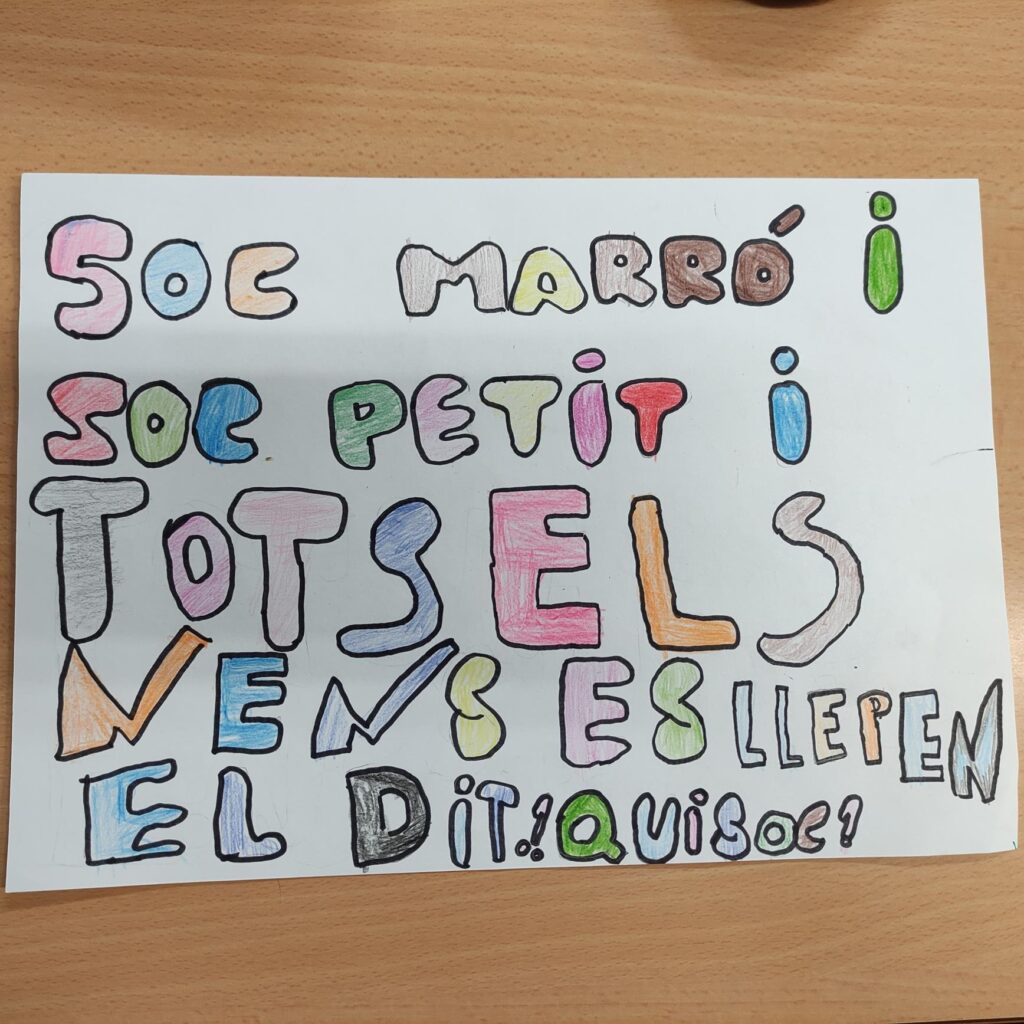 SOC MARRÓ i
SOC PETiT i
TOTS ELS
NENS ES LLEPEN
EL DiT!! QUi SOC?